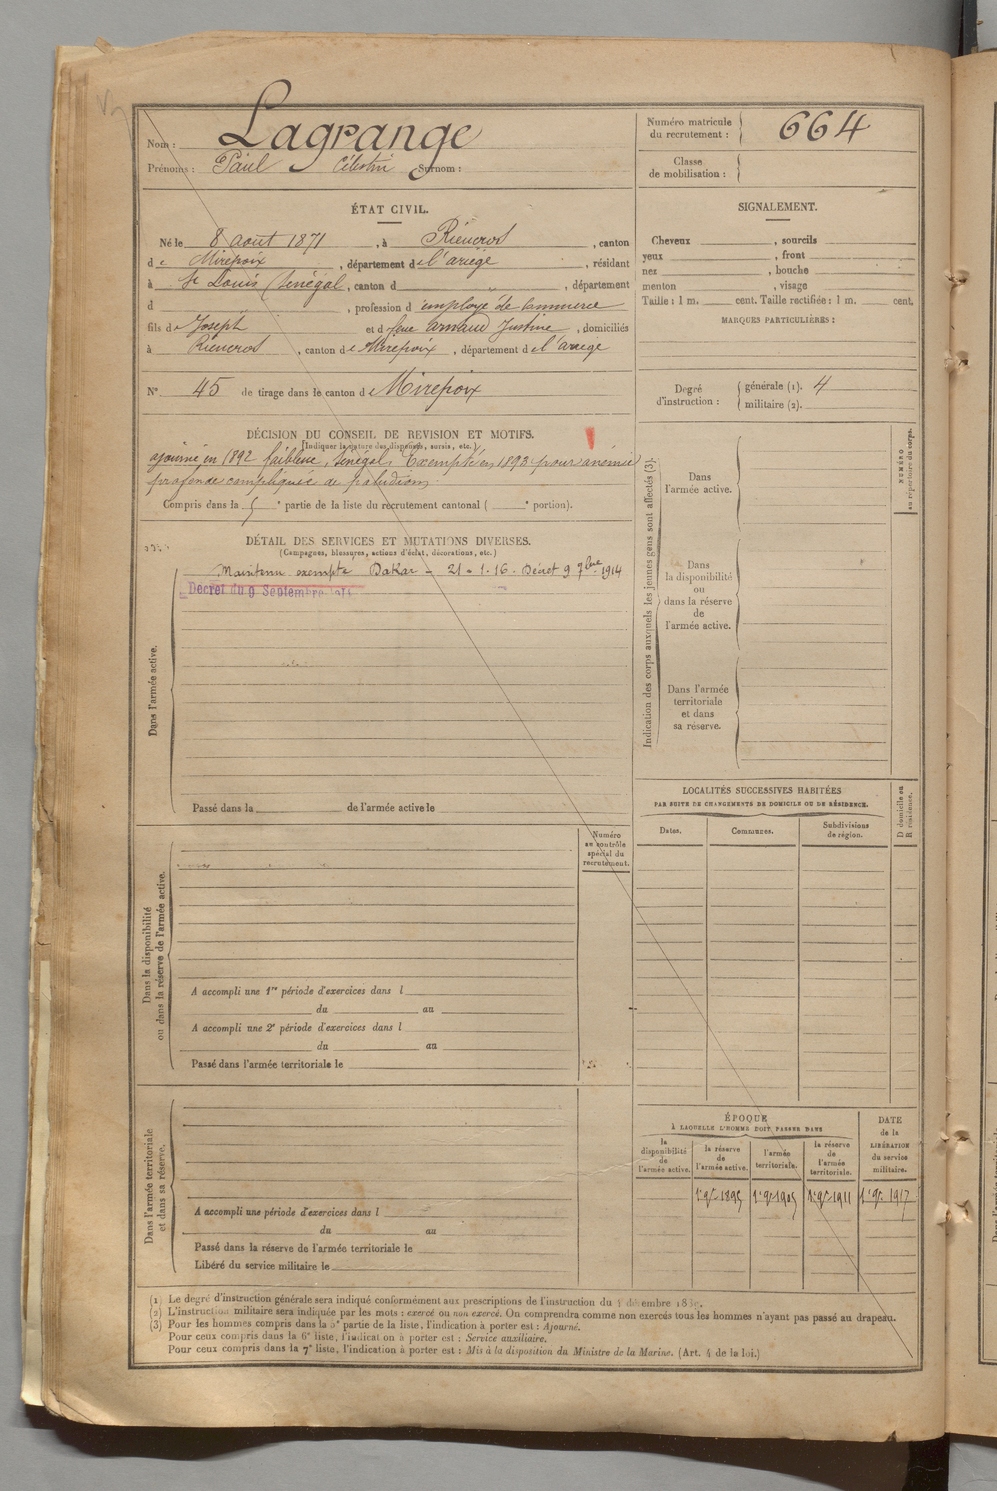 Nom : Lagrange
Prénoms : Paul Célestin Surnom :
Numéro matricule
du recrutement : 664
Classe
de mobilisation :
ÉTAT CIVIL.
Né le 8 août 1871, à Rieucros, canton
de Mirepoix, département de l'ariège, résidant
à St Louis (Sénégal), canton d , département
d , profession d'employé de commerce
fils de Joseph et de feue arnaud Justine, domiciliés
à Rieucros, canton de Mirepoix, département de l'ariege
N° 45 de tirage dans le canton de Mirepoix
SIGNALEMENT.
Cheveux , sourcils
yeux , front
nez , bouche
menton , visage
Taille : 1 m. cent. Taille rectifiée : 1 m. cent.
MARQUES PARTICULIÈRES :
Degré
d'instruction :
générale (1). 4
militaire (2).
DÉCISION DU CONSEIL DE REVISION ET MOTIFS.
[Indiquer la nature des dispenses, sursis, etc.]
ajourné en 1892 faiblesse, Sénégal, Exempté en 1893 pour anémie
profonde compliquée de paludisme
Compris dans la partie de la liste du recrutement cantonal ( ° portion).
DÉTAIL DES SERVICES ET MUTATIONS DIVERSES.
(Campagnes, blessures, actions d'éclat, décorations, etc.)
Dans l'armée active.
Maintenu exempté Dakar - 21-1-16. Décret 9 7bre 1914
Décret du 9 Septembre 1914
Passé dans la de l'armée active le
Indication des corps auxquels les jeunes gens sont affectés (3).
Dans
l'armée active.
Dans
la disponibilité
ou
dans la réserve
de
l'armée active.
Dans l'armée
territoriale
et dans
sa réserve.
NUMÉRO
au répertoire du corps.
LOCALITÉS SUCCESSIVES HABITÉES
PAR SUITE DE CHANGEMENTS DE DOMICILE OU DE RÉSIDENCE.
Dates.
Communes.
Subdivisions
de région.
D domicile ou
R résidence.
Dans la disponibilité
ou dans la réserve de l'armée active.
Numéro
au contrôle
spécial du
recrutement.
A accompli une 1re période d'exercices dans l
du au
A accompli une 2e période d'exercices dans l
du au
Passé dans l'armée territoriale le
Dans l'armée territoriale
et dans sa réserve.
A accompli une période d'exercices dans l
du au
Passé dans la réserve de l'armée territoriale le
Libéré du service militaire le
ÉPOQUE
À LAQUELLE L'HOMME DOIT PASSER DANS
la
disponibilité
de
l'armée active.
la réserve
de
l'armée active.
l'armée
territoriale.
la réserve
de
l'armée
territoriale.
DATE
de la
LIBÉRATION
du service
militaire.
1895 1905 1911 1917
(1) Le degré d'instruction générale sera indiqué conformément aux prescriptions de l'instruction du décembre
(2) L'instruction militaire sera indiquée par les mots : exercé ou non exercé. On comprendra comme non exercés tous les hommes n'ayant pas passé au drapeau.
(3) Pour les hommes compris dans la 5e partie de la liste, l'indication à porter est : Ajourné.
Pour ceux compris dans la 6e liste, l'indication à porter est : Service auxiliaire.
Pour ceux compris dans la 7e liste, l'indication à porter est : Mis à la disposition du Ministre de la Marine. (Art. 4 de la loi.)